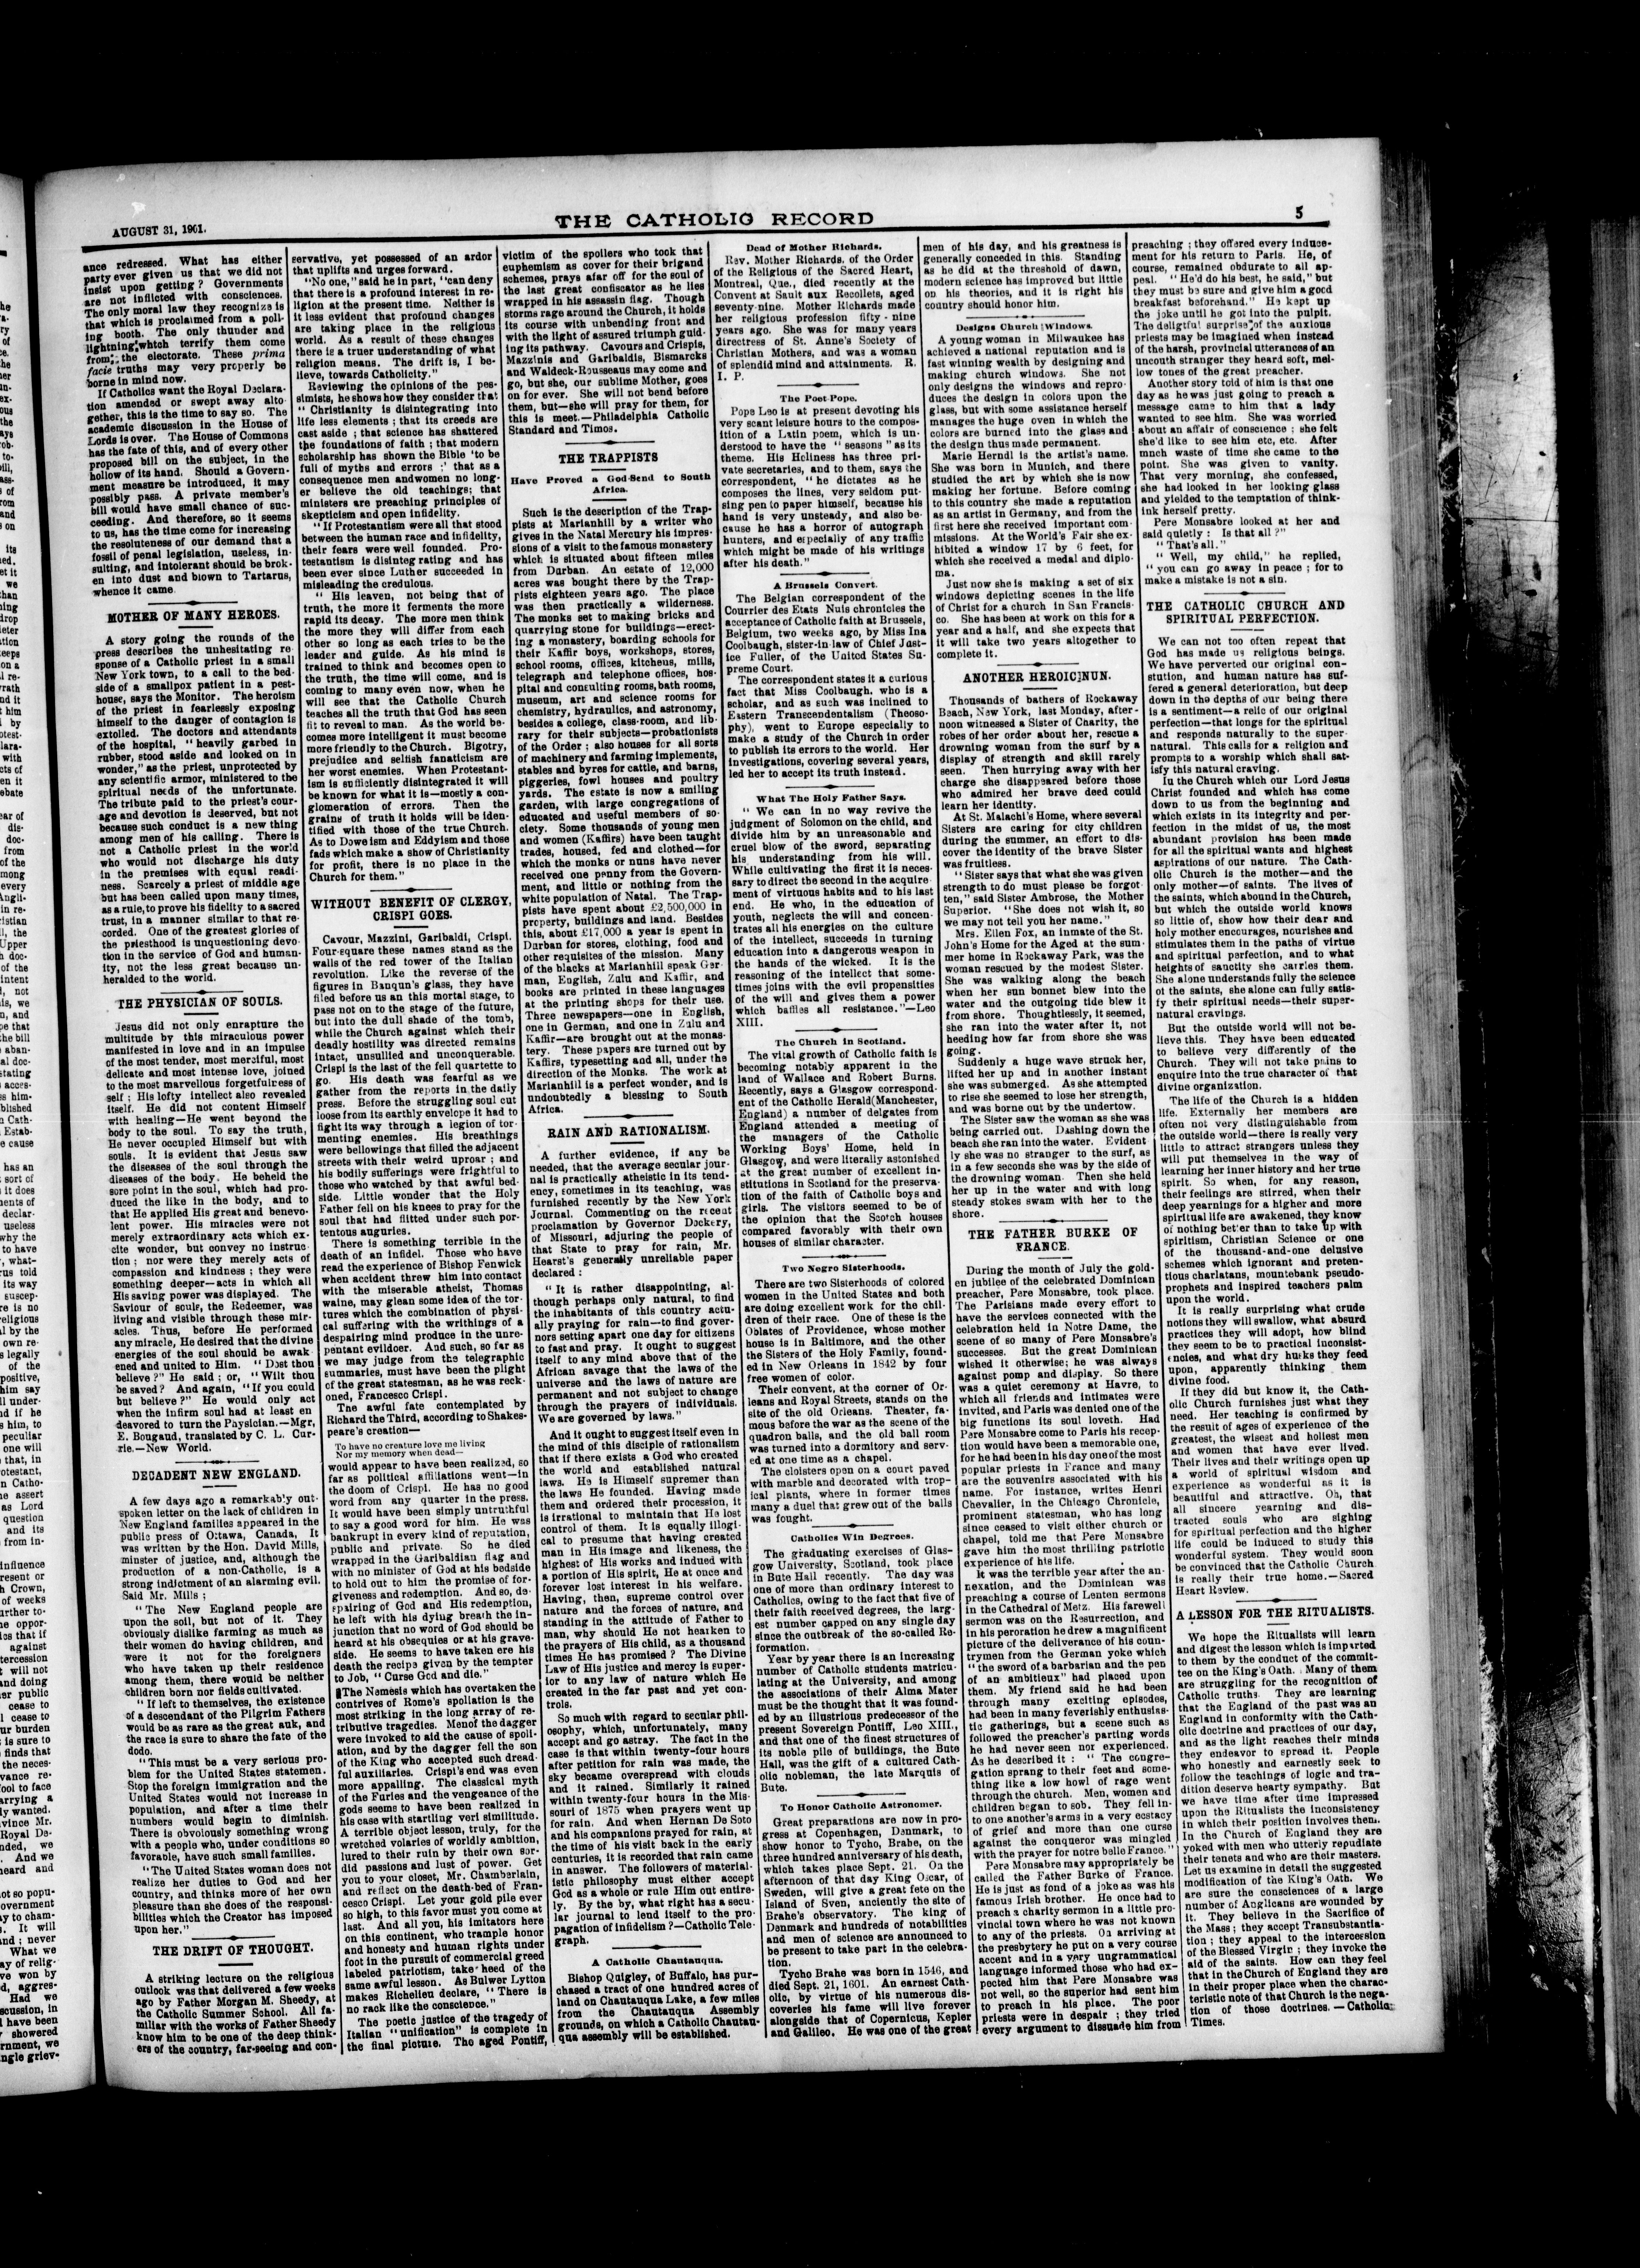 AUGUST 31, 1901.
THE CATHOLIC RECORD
5
ance redressed. What has either
party ever given us that we did not
insist upon getting? Governments
are not inflicted with consciences.
The only moral law they recognize is
that which is proclaimed from a poll-
ing booth. The only thunder and
lightning which terrify them come
from the electorate. These prima
facie truths may very properly be
borne in mind now.
If Catholics want the Royal Declara-
tion amended or swept away alto
gether, this is the time to say so. The
academic discussion in the House of
Lords is over. The House of Commons
has the fate of this, and of every other
proposed bill on the subject, in the
hollow of its hand. Should a Govern-
ment measure be introduced, it may
possibly pass. A private member's
bill would have small chance of suc-
ceeding. And therefore, so it seems
to us, has the time come for increasing
the resoluteness of our demand that a
fossil of penal legislation, useless, in-
sulting, and intolerant should be brok-
en into dust and blown to Tartarus,
whence it came
MOTHER OF MANY HEROES.
A story going the rounds of the
press describes the unhesitating re
sponse of a Catholic priest in a small
New York town, to a call to the bed-
side of a smallpox patient in a pest-
house, says the Monitor. The heroism
of the priest in fearlessly exposing
himself to the danger of contagion is
extolled. The doctors and attendants
of the hospital, "heavily garbed in
rubber, stood aside and looked on in
wonder," as the priest, unprotected by
any scientific armor, ministered to the
spiritual needs of the unfortunate.
The tribute paid to the priest's cour-
age and devotion is deserved, but not
because such conduct is a new thing
among men of his calling. There is
not a Catholic priest in the world
who would not discharge his duty
in the premises with equal readi-
ness. Scarcely a priest of middle age
but has been called upon many times,
as a rule, to prove his fidelity to a sacred
trust, in a manner similar to that re-
corded. One of the greatest glories of
the priesthood is unquestioning devo
tion in the service of God and human-
ity, not the less great because un-
heralded to the world.
THE PHYSICIAN OF SOULS.
Jesus did not only enrapture the
multitude by this miraculous power
manifested in love and in an impulse
of the most tender, most merciful, most
delicate and most intense love, joined
to the most marvellous forgetfulness of
self; His lofty intellect also revealed
itself. He did not content Himself
with healing—He went beyond the
body to the soul. To say the truth,
He never occupied Himself but with
souls. It is evident that Jesus saw
the diseases of the soul through the
diseases of the body. He beheld the
sore point in the soul, which had pro-
duced the like in the body, and to
that He applied His great and benevo-
lent power. His miracles were not
merely extraordinary acts which ex-
cite wonder, but convey no instruc
tion; nor were they merely acts of
compassion and kindness; they were
something deeper—acts in which all
His saving power was displayed. The
Saviour of souls, the Redeemer, was
living and visible through these mir-
acles. Thus, before He performed
any miracle, He desired that the divine
energies of the soul should be awak
ened and united to Him. "Dost thou
believe?" He said; or, "Wilt thou
be saved? And again, "If you could
but believe?" He would only act
when the infirm soul had at least en
deavored to turn the Physician.—Mgr,
E. Bougaud, translated by C. L. Cur-
rie.—New World.
DECADENT NEW ENGLAND.
A few days ago a remarkably out-
spoken letter on the lack of children in
New England families appeared in the
public press of Ottawa, Canada, It
was written by the Hon. David Mills,
minster of justice, and, although the
production of a non-Catholic, is a
strong indictment of an alarming evil.
Said Mr. Mills;
"The New England people are
upon the soil, but not of it. They
obviously dislike farming as much as
their women do having children, and
were it not for the foreigners
who have taken up their residence
among them, there would be neither
children born nor fields cultivated.
"If left to themselves, the existence
of a descendant of the Pilgrim Fathers
would be as rare as the great auk, and
the race is sure to share the fate of the
dodo.
"This must be a very serious pro-
blem for the United States statemen.
Stop the foreign immigration and the
United States would not increase in
population, and after a time their
numbers would begin to diminish.
There is obvolously something wrong
with a people who, under conditions so
favorable, have such small families.
"The United States woman does not
realize her duties to God and her
country, and thinks more of her own
pleasure than she does of the responsi-
bilities which the Creator has imposed
upon her."
THE DRIFT OF THOUGHT.
A striking lecture on the religious
outlook was that delivered a few weeks
ago by Father Morgan M. Sheedy, at
the Catholic Summer School. All fa-
miliar with the works of Father Sheedy
know him to be one of the deep think-
ers of the country, far-seeing and con-
servative, yet possessed of an ardor
that uplifts and urges forward.
"No one," said he in part, "can deny
that there is a profound interest in re-
ligion at the present time. Neither is
it less evident that profound changes
are taking place in the religious
world. As a result of these changes
there is a truer understanding of what
religion means. The drift is, I be-
lieve, towards Catholicity."
Reviewing the opinions of the pes-
simists, he shows how they consider that
"Christianity is disintegrating into
life less elements; that its creeds are
cast aside; that science has shattered
the foundations of faith; that modern
scholarship has shown the Bible 'to be
full of myths and errors;' that as a
consequence men and women no long-
er believe the old teachings; that
ministers are preaching principles of
skepticism and open infidelity.
"If Protestantism were all that stood
between the human race and infidelity,
their fears were well founded. Pro-
testantism is disintegrating and has
been ever since Luther succeeded in
misleading the credulous.
"His leaven, not being that of
truth, the more it ferments the more
rapid its decay. The more men think
the more they will differ from each
other so long as each tries to be the
leader and guide. As his mind is
trained to think and becomes open to
the truth, the time will come, and is
coming to many even now, when he
will see that the Catholic Church
teaches all the truth that God has seen
fit to reveal to man. As the world be-
comes more intelligent it must become
more friendly to the Church. Bigotry,
prejudice and selfish fanaticism are
her worst enemies. When Protestant-
ism is sufficiently disintegrated it will
be known for what it is—mostly a con-
glomeration of errors. Then the
grains of truth it holds will be iden-
tified with those of the true Church.
As to Doweism and Eddyism and those
fads which make a show of Christianity
for profit, there is no place in the
Church for them."
WITHOUT BENEFIT OF CLERGY,
CRISPI GOES.
Cavour, Mazzini, Garibaldi, Crispi.
Four-square these names stand as the
walls of the red tower of the Italian
revolution. Like the reverse of the
figures in Banquo's glass, they have
filed before us an this mortal stage, to
pass not on to the stage of the future,
but into the dull shade of the tomb,
while the Church against which their
deadly hostility was directed remains
intact, unsullied and unconquerable.
Crispi is the last of the fell quartette to
go. His death was fearful as we
gather from the reports in the daily
press. Before the struggling soul cut
loose from its earthly envelope it had to
fight its way through a legion of tor-
menting enemies. His breathings
were bellowings that filled the adjacent
streets with their weird uproar; and
his bodily sufferings were frightful to
those who watched by that awful bed-
side. Little wonder that the Holy
Father fell on his knees to pray for the
soul that had flitted under such por-
tentous auguries.
There is something terrible in the
death of an infidel. Those who have
read the experience of Bishop Fenwick
when accident threw him into contact
with the miserable atheist, Thomas
waine, may glean some idea of the tor-
tures which the combination of physi-
cal suffering with the writhings of a
despairing mind produce in the unre-
pentant evildoer. And such, so far as
we may judge from the telegraphic
summaries, must have been the plight
of the great statesman, as he was reck-
oned, Francesco Crispi.
The awful fate contemplated by
Richard the Third, according to Shakes-
peare's creation—
To have no creature love me living
Nor my memory when dead—
would appear to have been realized, so
far as political affiliations went—in
the doom of Crispi. He has no good
word from any quarter in the press.
It would have been simply untruthful
to say a good word for him. He was
bankrupt in every kind of reputation,
public and private. So he died
wrapped in the Garibaldian flag and
with no minister of God at his bedside
to hold out to him the promise of for-
giveness and redemption. And so, de-
spairing of God and His redemption,
he left with his dying breath the in-
junction that no word of God should be
heard at his obsequies or at his grave-
side. He seems to have taken ere his
death the recipe given by the tempter
to Job, "Curse God and die."
The Nemesis which has overtaken the
contrives of Rome's spoliation is the
most striking in the long array of re-
tributive tragedies. Men of the dagger
were invoked to aid the cause of spoli-
ation, and by the dagger fell the son
of the King who accepted such dread-
ful auxiliaries. Crispi's end was even
more appalling. The classical myth
of the Furies and the vengeance of the
gods seems to have been realized in
his case with startling verisimilitude.
A terrible object lesson, truly, for the
wretched volaries of worldly ambition,
lured to their ruin by their own sor-
did passions and lust of power. Get
you to your closet, Mr. Chamberlain,
and reflect on the death-bed of Fran-
cesco Crispi. Let your gold pile ever
so high, to this favor must you come at
last. And all you, his imitators here
on this continent, who trample honor
and honesty and human rights under
foot in the pursuit of commercial greed
labeled patriotism, take heed of the
same awful lesson. As Bulwer Lytton
makes Richelieu declare, "There is
no rack like the conscience."
The poetic justice of the tragedy of
Italian "unification" is complete in
the final picture. The aged Pontiff,
victim of the spoilers who took that
euphemism as cover for their brigand
schemes, prays afar off for the soul of
the last great confiscator as he lies
wrapped in his assassin flag. Though
storms rage around the Church, it holds
its course with unbending front and
with the light of assured triumph guid-
ing its pathway. Cavours and Crispis,
Mazzinis and Garibaldis, Bismarcks
and Waldeck-Rousseaus may come and
go, but she, our sublime Mother, goes
on for ever. She will not bend before
them, but—she will pray for them, for
this is meet.—Philadelphia Catholic
Standard and Times.
THE TRAPPISTS
Have Proved a God-Send to South
Africa.
Such is the description of the Trap-
pists at Marianhill by a writer who
gives in the Natal Mercury his impres-
sions of a visit to the famous monastery
which is situated about fifteen miles
from Durban. An estate of 12,000
acres was bought there by the Trap-
pists eighteen years ago. The place
was then practically a wilderness.
The monks set to making bricks and
quarrying stone for buildings—erect-
ing a monastery, boarding schools for
their Kaffir boys, workshops, stores,
school rooms, offices, kitchens, mills,
telegraph and telephone offices, hos-
pital and consulting rooms, bath rooms,
museum, art and science rooms for
chemistry, hydraulics, and astronomy,
besides a college, class-room, and lib-
rary for their subjects—probationists
of the Order; also houses for all sorts
of machinery and farming implements,
stables and byres for cattle, and barns,
piggeries, fowl houses and poultry
yards. The estate is now a smiling
garden, with large congregations of
educated and useful members of so-
ciety. Some thousands of young men
and women (Kaffirs) have been taught
trades, housed, fed and clothed—for
which the monks or nuns have never
received one penny from the Govern-
ment, and little or nothing from the
white population of Natal. The Trap-
pists have spent about £2,500,000 in
property, buildings and land. Besides
this, about £17,000 a year is spent in
Durban for stores, clothing, food and
other requisites of the mission. Many
of the blacks at Marianhill speak Ger-
man, English, Zulu and Kaffir, and
books are printed in these languages
at the printing shops for their use.
Three newspapers—one in English,
one in German, and one in Zulu and
Kaffir—are brought out at the monas-
tery. These papers are turned out by
Kaffirs, typesetting and all, under the
direction of the Monks. The work at
Marianhill is a perfect wonder, and is
undoubtedly a blessing to South
Africa.
RAIN AND RATIONALISM.
A further evidence, if any be
needed, that the average secular jour-
nal is practically atheistic in its tend-
ency, sometimes in its teaching, was
furnished recently by the New York
Journal. Commenting on the recent
proclamation by Governor Dockery,
of Missouri, adjuring the people of
that State to pray for rain, Mr.
Hearst's generally unreliable paper
declared:
"It is rather disappointing, al-
though perhaps only natural, to find
the inhabitants of this country actu-
ally praying for rain—to find gover-
nors setting apart one day for citizens
to fast and pray. It ought to suggest
itself to any mind above that of the
African savage that the laws of the
universe and the laws of nature are
permanent and not subject to change
through the prayers of individuals.
We are governed by laws."
And it ought to suggest itself even in
the mind of this disciple of rationalism
that if there exists a God who created
the world and established natural
laws. He is Himself supremer than
the laws He founded. Having made
them and ordered their procession, it
is irrational to maintain that He lost
control of them. It is equally illogi-
cal to presume that having created
man in His image and likeness, the
highest of His works and indued with
a portion of His spirit, He at once and
forever lost interest in his welfare.
Having, then, supreme control over
nature and the forces of nature, and
standing in the attitude of Father to
man, why should He not hearken to
the prayers of His child, as a thousand
times He has promised? The Divine
Law of His justice and mercy is super-
ior to any law of nature which He
created in the far past and yet con-
trols.
So much with regard to secular phil-
osophy, which, unfortunately, many
accept and go astray. The fact in the
case is that within twenty-four hours
after petition for rain was made, the
sky became overspread with clouds
and it rained. Similarly it rained
within twenty-four hours in the Mis-
souri of 1875 when prayers went up
for rain. And when Hernan De Soto
and his companions prayed for rain, at
the time of his visit back in the early
centuries, it is recorded that rain came
in answer. The followers of material-
istic philosophy must either accept
God as a whole or rule Him out entire-
ly. By the by, what right has a secu-
lar journal to lend itself to the pro-
pagation of infidelism?—Catholic Tele-
graph.
A Catholic Chautauqua.
Bishop Quigley, of Buffalo, has pur-
chased a tract of one hundred acres of
land on Chautauqua Lake, a few miles
from the Chautauqua Assembly
grounds, on which a Catholic Chautau-
qua assembly will be established.
Dead of Mother Richards.
Rev. Mother Richards, of the Order
of the Religious of the Sacred Heart,
Montreal, Que., died recently at the
Convent at Sault aux Recollets, aged
seventy-nine. Mother Richards made
her religious profession fifty-nine
years ago. She was for many years
directress of St. Anne's Society of
Christian Mothers, and was a woman
of splendid mind and attainments. R.
I. P.
The Poet-Pope.
Pope Leo is at present devoting his
very scant leisure hours to the compos-
ition of a Latin poem, which is un-
derstood to have the "seasons" as its
theme. His Holiness has three pri-
vate secretaries, and to them, says the
correspondent, "he dictates as he
composes the lines, very seldom put-
sing pen to paper himself, because his
hand is very unsteady, and also be-
cause he has a horror of autograph
hunters, and especially of any traffic
which might be made of his writings
after his death."
A Brussels Convert.
The Belgian correspondent of the
Courrier des Etats Nuis chronicles the
acceptance of Catholic faith at Brussels,
Belgium, two weeks ago, by Miss Ina
Coolbaugh, sister-in law of Chief Just-
ice Fuller, of the United States Su-
preme Court.
The correspondent states it a curious
fact that Miss Coolbaugh, who is a
scholar, and as such was inclined to
Eastern Transcendentalism (Theoso-
phy), went to Europe especially to
make a study of the Church in order
to publish its errors to the world. Her
investigations, covering several years,
led her to accept its truth instead.
What The Holy Father Says.
"We can in no way revive the
judgment of Solomon on the child, and
divide him by an unreasonable and
cruel blow of the sword, separating
his understanding from his will.
While cultivating the first it is neces-
sary to direct the second in the acquire
ment of virtuous habits and to his last
end. He who, in the education of
youth, neglects the will and concen-
trates all his energies on the culture
of the intellect, succeeds in turning
education into a dangerous weapon in
the hands of the wicked. It is the
reasoning of the intellect that some-
times joins with the evil propensities
of the will and gives them a power
which baffles all resistance."—Leo
XIII.
The Church in Scotland.
The vital growth of Catholic faith is
becoming notably apparent in the
land of Wallace and Robert Burns.
Recently, says a Glasgow correspond-
ent of the Catholic Herald (Manchester,
England) a number of delgates from
England attended a meeting of
the managers of the Catholic
Working Boys' Home, held in
Glasgow, and were literally astonished
at the great number of excellent in-
stitutions in Scotland for the preserva-
tion of the faith of Catholic boys and
girls. The visitors seemed to be of
the opinion that the Scotch houses
compared favorably with their own
houses of similar character.
Two Negro Sisterhoods.
There are two Sisterhoods of colored
women in the United States and both
are doing excellent work for the chil-
dren of their race. One of these is the
Oblates of Providence, whose mother
house is in Baltimore, and the other
the Sisters of the Holy Family, found-
ed in New Orleans in 1842 by four
free women of color.
Their convent, at the corner of Or-
leans and Royal Streets, stands on the
site of the old Orleans. Theater, fa-
mous before the war as the scene of the
quadron balls, and the old ball room
was turned into a dormitory and serv-
ed at one time as a chapel.
The cloisters open on a court paved
with marble and decorated with trop-
ical plants, where in former times
many a duel that grew out of the balls
was fought.
Catholics Win Degrees.
The graduating exercises of Glas-
gow University, Scotland, took place
in Bute Hall recently. The day was
one of more than ordinary interest to
Catholics, owing to the fact that five of
their faith received degrees, the larg-
est number capped on any single day
since the outbreak of the so-called Re-
formation.
Year by year there is an increasing
number of Catholic students matricu-
lating at the University, and among
the associations of their Alma Mater
must be the thought that it was found-
ed by an illustrious predecessor of the
present Sovereign Pontiff, Leo XIII.,
and that one of the finest structures of
its noble pile of buildings, the Bute
Hall, was the gift of a cultured Cath-
olic nobleman, the late Marquis of
Bute.
To Honor Catholic Astronomer.
Great preparations are now in pro-
gress at Copenhagen, Denmark, to
show honor to Tycho, Brahe, on the
three hundred anniversary of his death,
which takes place Sept. 21. On the
afternoon of that day King Oscar, of
Sweden, will give a great fete on the
Island of Sven, anciently the site of
Brahe's observatory. The king of
Denmark and hundreds of notabilities
and men of science are announced to
be present to take part in the celebra-
tion.
Tycho Brahe was born in 1546, and
died Sept. 21, 1601. An earnest Cath-
olic, by virtue of his numerous dis-
coveries his fame will live forever
alongside that of Copernicus, Kepler
and Galileo. He was one of the great
men of his day, and his greatness is
generally conceded in this. Standing
as he did at the threshold of dawn,
modern science has improved but little
on his theories, and it is right his
country should honor him.
Designs Church Windows.
A young woman in Milwaukee has
achieved a national reputation and is
fast winning wealth by designing and
making church windows. She not
only designs the windows and repro-
duces the design in colors upon the
glass, but with some assistance herself
manages the huge oven in which the
colors are burned into the glass and
the design thus made permanent.
Marie Herndl is the artist's name.
She was born in Munich, and there
studied the art by which she is now
making her fortune. Before coming
to this country she made a reputation
as an artist in Germany, and from the
first here she received important com-
missions. At the World's Fair she ex-
hibited a window 17 by 6 feet, for
which she received a medal and diplo-
ma.
Just now she is making a set of six
windows depicting scenes in the life
of Christ for a church in San Francis-
co. She has been at work on this for a
year and a half, and she expects that
it will take two years altogether to
complete it.
ANOTHER HEROIC NUN.
Thousands of bathers of Rockaway
Beach, New York, last Monday, after-
noon witnessed a Sister of Charity, the
robes of her order about her, rescue a
drowning woman from the surf by a
display of strength and skill rarely
seen. Then hurrying away with her
charge she disappeared before those
who admired her brave deed could
learn her identity.
At St. Malachi's Home, where several
Sisters are caring for city children
during the summer, an effort to dis-
cover the identity of the brave Sister
was fruitless.
"Sister says that what she was given
strength to do must please be forgot-
ten," said Sister Ambrose, the Mother
Superior. "She does not wish it, so
we may not tell you her name."
Mrs. Ellen Fox, an inmate of the St.
John's Home for the Aged at the sum-
mer home in Rockaway Park, was the
woman rescued by the modest Sister.
She was walking along the beach
when her sun bonnet blew into the
water and the outgoing tide blew it
from shore. Thoughtlessly, it seemed,
she ran into the water after it, not
heeding how far from shore she was
going.
Suddenly a huge wave struck her,
lifted her up and in another instant
she was submerged. As she attempted
to rise she seemed to lose her strength,
and was borne out by the undertow.
The Sister saw the woman as she was
being carried out. Dashing down the
beach she ran into the water. Evident
ly she was no stranger to the surf, as
in a few seconds she was by the side of
the drowning woman. Then she held
her up in the water and with long
steady stokes swam with her to the
shore.
THE FATHER BURKE OF
FRANCE.
During the month of July the gold-
en jubilee of the celebrated Dominican
preacher, Pere Monsabre, took place.
The Parisians made every effort to
have the services connected with the
celebration held in Notre Dame, the
scene of so many of Pere Monsabre's
successes. But the great Dominican
wished it otherwise; he was always
against pomp and display. So there
was a quiet ceremony at Havre, to
which all friends and intimates were
invited, and Paris was denied one of the
big functions its soul loveth. Had
Pere Monsabre come to Paris his recep-
tion would have been a memorable one,
for he had been in his day one of the most
popular priests in France and many
are the souvenirs associated with his
name. For instance, writes Henri
Chevalier, in the Chicago Chronicle,
prominent statesman, who has long
since ceased to visit either church or
chapel, told me that Pere Monsabre
gave him the most thrilling patriotic
experience of his life.
It was the terrible year after the an-
nexation, and the Dominican was
preaching a course of Lenten sermons
in the Cathedral of Metz. His farewell
sermon was on the Resurrection, and
in his peroration he drew a magnificent
picture of the deliverance of his coun-
trymen from the German yoke which
"the sword of a barbarian and the pen
of an ambitieux" had placed upon
them. My friend said he had been
through many exciting episodes,
had been in many feverishly enthusias-
tic gatherings, but a scene such as
followed the preacher's parting words
he had never seen nor experienced.
As he described it: "The congre-
gation sprang to their feet and some-
thing like a low howl of rage went
through the church. Men, women and
children began to sob. They fell in-
to one another's arms in a very ecstacy
of grief and more than one curse
against the conqueror was mingled
with the prayer for notre belle France."
Pere Monsabre may appropriately be
called the Father Burke of France.
He is just as fond of a joke as was his
famous Irish brother. He once had to
preach a charity sermon in a little pro-
vincial town where he was not known
to any of the priests. On arriving at
the presbytery he put on a very course
accent and in a very ungrammatical
language informed those who had ex-
pected him that Pere Monsabre was
not well, so the superior had sent him
to preach in his place. The poor
priests were in despair; they tried
every argument to dissuade him from
preaching; they offered every induce-
ment for his return to Paris. He, of
course, remained obdurate to all ap-
peal. "He'd do his best, he said," but
they must be sure and give him a good
breakfast beforehand." He kept up
the joke until he got into the pulpit.
The deligtful surprise of the anxious
priests may be imagined when instead
of the harsh, provincial utterances of an
uncouth stranger they heard soft, mel-
low tones of the great preacher.
Another story told of him is that one
day as he was just going to preach a
message came to him that a lady
wanted to see him. She was worried
about an affair of conscience; she felt
she'd like to see him etc, etc. After
much waste of time she came to the
point. She was given to vanity.
That very morning, she confessed,
she had looked in her looking glass
and yielded to the temptation of think-
ink herself pretty.
Pere Monsabre looked at her and
said quietly: Is that all?"
"That's all."
"Well, my child," he replied,
"you can go away in peace; for to
make a mistake is not a sin.
THE CATHOLIC CHURCH AND
SPIRITUAL PERFECTION.
We can not too often repeat that
God has made us religious beings.
We have perverted our original con-
stution, and human nature has suf-
fered a general deterioration, but deep
down in the depths of our being there
is a sentiment—a relic of our original
perfection—that longs for the spiritual
and responds naturally to the super-
natural. This calls for a religion and
prompts to a worship which shall sat-
isfy this natural craving.
In the Church which our Lord Jesus
Christ founded and which has come
down to us from the beginning and
which exists in its integrity and per-
fection in the midst of us, the most
abundant provision has been made
for all the spiritual wants and highest
aspirations of our nature. The Cath-
olic Church is the mother—and the
only mother—of saints. The lives of
the saints, which abound in the Church,
but which the outside world knows
so little of, show how their dear and
holy mother encourages, nourishes and
stimulates them in the paths of virtue
and spiritual perfection, and to what
heights of sanctity she carries them.
She alone understands fully the science
of the saints, she alone can fully satis-
fy their spiritual needs—their super-
natural cravings.
But the outside world will not be-
lieve this. They have been educated
to believe very differently of the
Church. They will not take pains to
enquire into the true character of that
divine organization.
The life of the Church is a hidden
life. Externally her members are
often not very distinguishable from
the outside world—there is really very
little to attract strangers unless they
will put themselves in the way of
learning her inner history and her true
spirit. So when, for any reason,
their feelings are stirred, when their
deep yearnings for a higher and more
spiritual life are awakened, they know
of nothing better than to take up with
spiritism, Christian Science or one
of the thousand-and-one delusive
schemes which ignorant and preten-
tious charlatans, mountebank pseudo-
prophets and inspired teachers palm
upon the world.
It is really surprising what crude
notions they will swallow, what absurd
practices they will adopt, how blind
they seem to be to practical inconsist-
encies, and what dry husks they feed
upon, apparently thinking them
divine food.
If they did but know it, the Cath-
olic Church furnishes just what they
need. Her teaching is confirmed by
the result of ages of experience of the
greatest, the wisest and holiest men
and women that have ever lived.
Their lives and their writings open up
a world of spiritual wisdom and
experience as wonderful as it is
beautiful and attractive. Oh, that
all sincere yearning and dis-
tracted souls who are sighing
for spiritual perfection and the higher
life could be induced to study this
wonderful system. They would soon
be convinced that the Catholic Church
is really their true home.—Sacred
Heart Review.
A LESSON FOR THE RITUALISTS.
We hope the Ritualists will learn
and digest the lesson which is imparted
to them by the conduct of the commit-
tee on the King's Oath. Many of them
are struggling for the recognition of
Catholic truths. They are learning
that the England of the past was an
England in conformity with the Cath-
olic doctrine and practices of our day,
and as the light reaches their minds
they endeavor to spread it. People
who honestly and earnestly seek to
follow the teachings of logic and tra-
dition deserve hearty sympathy. But
we have time after time impressed
upon the Ritualists the inconsistency
in which their position involves them.
In the Church of England they are
yoked with men who utterly repudiate
their tenets and who are their masters.
Let us examine in detail the suggested
modification of the King's Oath. We
are sure the consciences of a large
number of Anglicans are wounded by
it. They believe in the Sacrifice of
the Mass; they accept Transubstantia-
tion; they appeal to the intercession
of the Blessed Virgin; they invoke the
aid of the saints. How can they feel
that in the Church of England they are
in their proper place when the charac-
teristic note of that Church is the nega-
tion of those doctrines.—Catholic
Times.